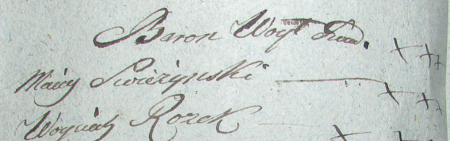 Baron Woyt
Maciy Swierzynski + ++
Woyciech Rozek + ++